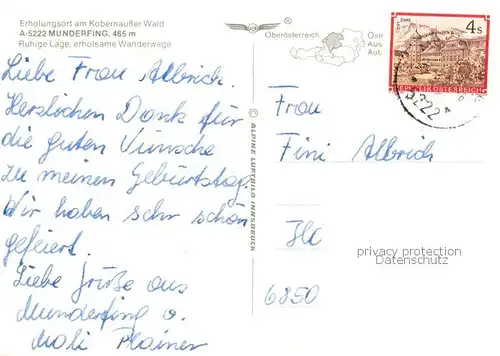 Erholungsort am Kobernaußer Wald
A-5222 MUNDERFING, 465 m
Ruhige Lage, erholsame Wanderwege
Liebe Frau Albrich.
Herzlichen Dank für
die guten Wünsche
zu meinen Geburtstag.
Wir haben sehr schön
gefeiert.
Liebe Grüße aus
Munderfing v.
Mali Plainer
© ALPINE LUFTBILD INNSBRUCK
Oberösterreich
4s
REPUBLIK ÖSTERREICH
5222
Frau
Fini Albrich
6850
privacy protection
Datenschutz